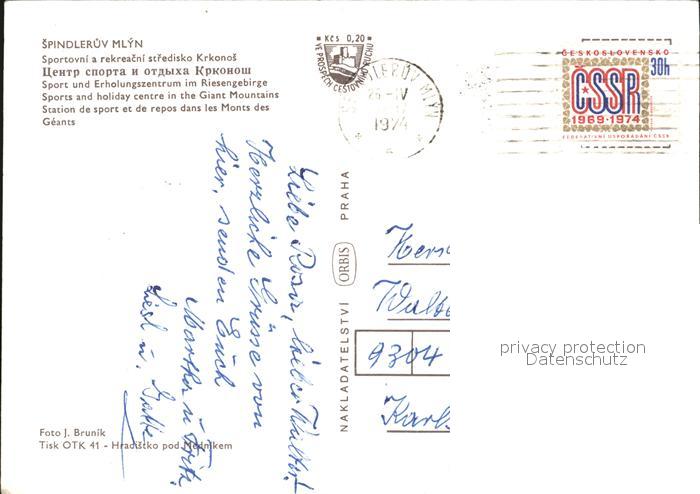 ŠPINDLERŮV MLÝN
Sportovní a rekreační středisko Krkonoš
Центр спорта и отдыха Крконош
Sport und Erholungszentrum im Riesengebirge
Sports and holiday centre in the Giant Mountains
Station de sport et de repos dans les Monts des
Géants
Kčs 0,20
VE PROSPĚCH CESTOVNÍHO RUCHU
MLÝN
25.-IV
1974
ČESKOSLOVENSKO
30h
ČSSR
1969-1974
FEDERATIVNÍ USPOŘÁDÁNÍ ČSSR
Liebe Rosa, lieber Walter!
Herzliche Grüsse von
hier, senden Euch
Martha u.
Liesl u.
NAKLADATELSTVÍ ORBIS PRAHA
9304
privacy protection
Datenschutz
Foto J. Bruník
Tisk OTK 41 - Hradištko pod Medníkem